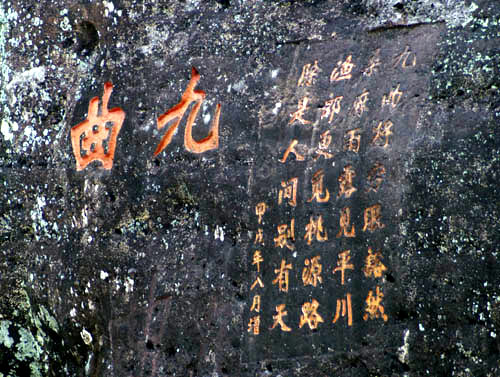 九曲将穷眼豁然
桑麻雨露見平川
渔郎更覓桃源路
除是人間别有天
甲戌年八月增
九曲